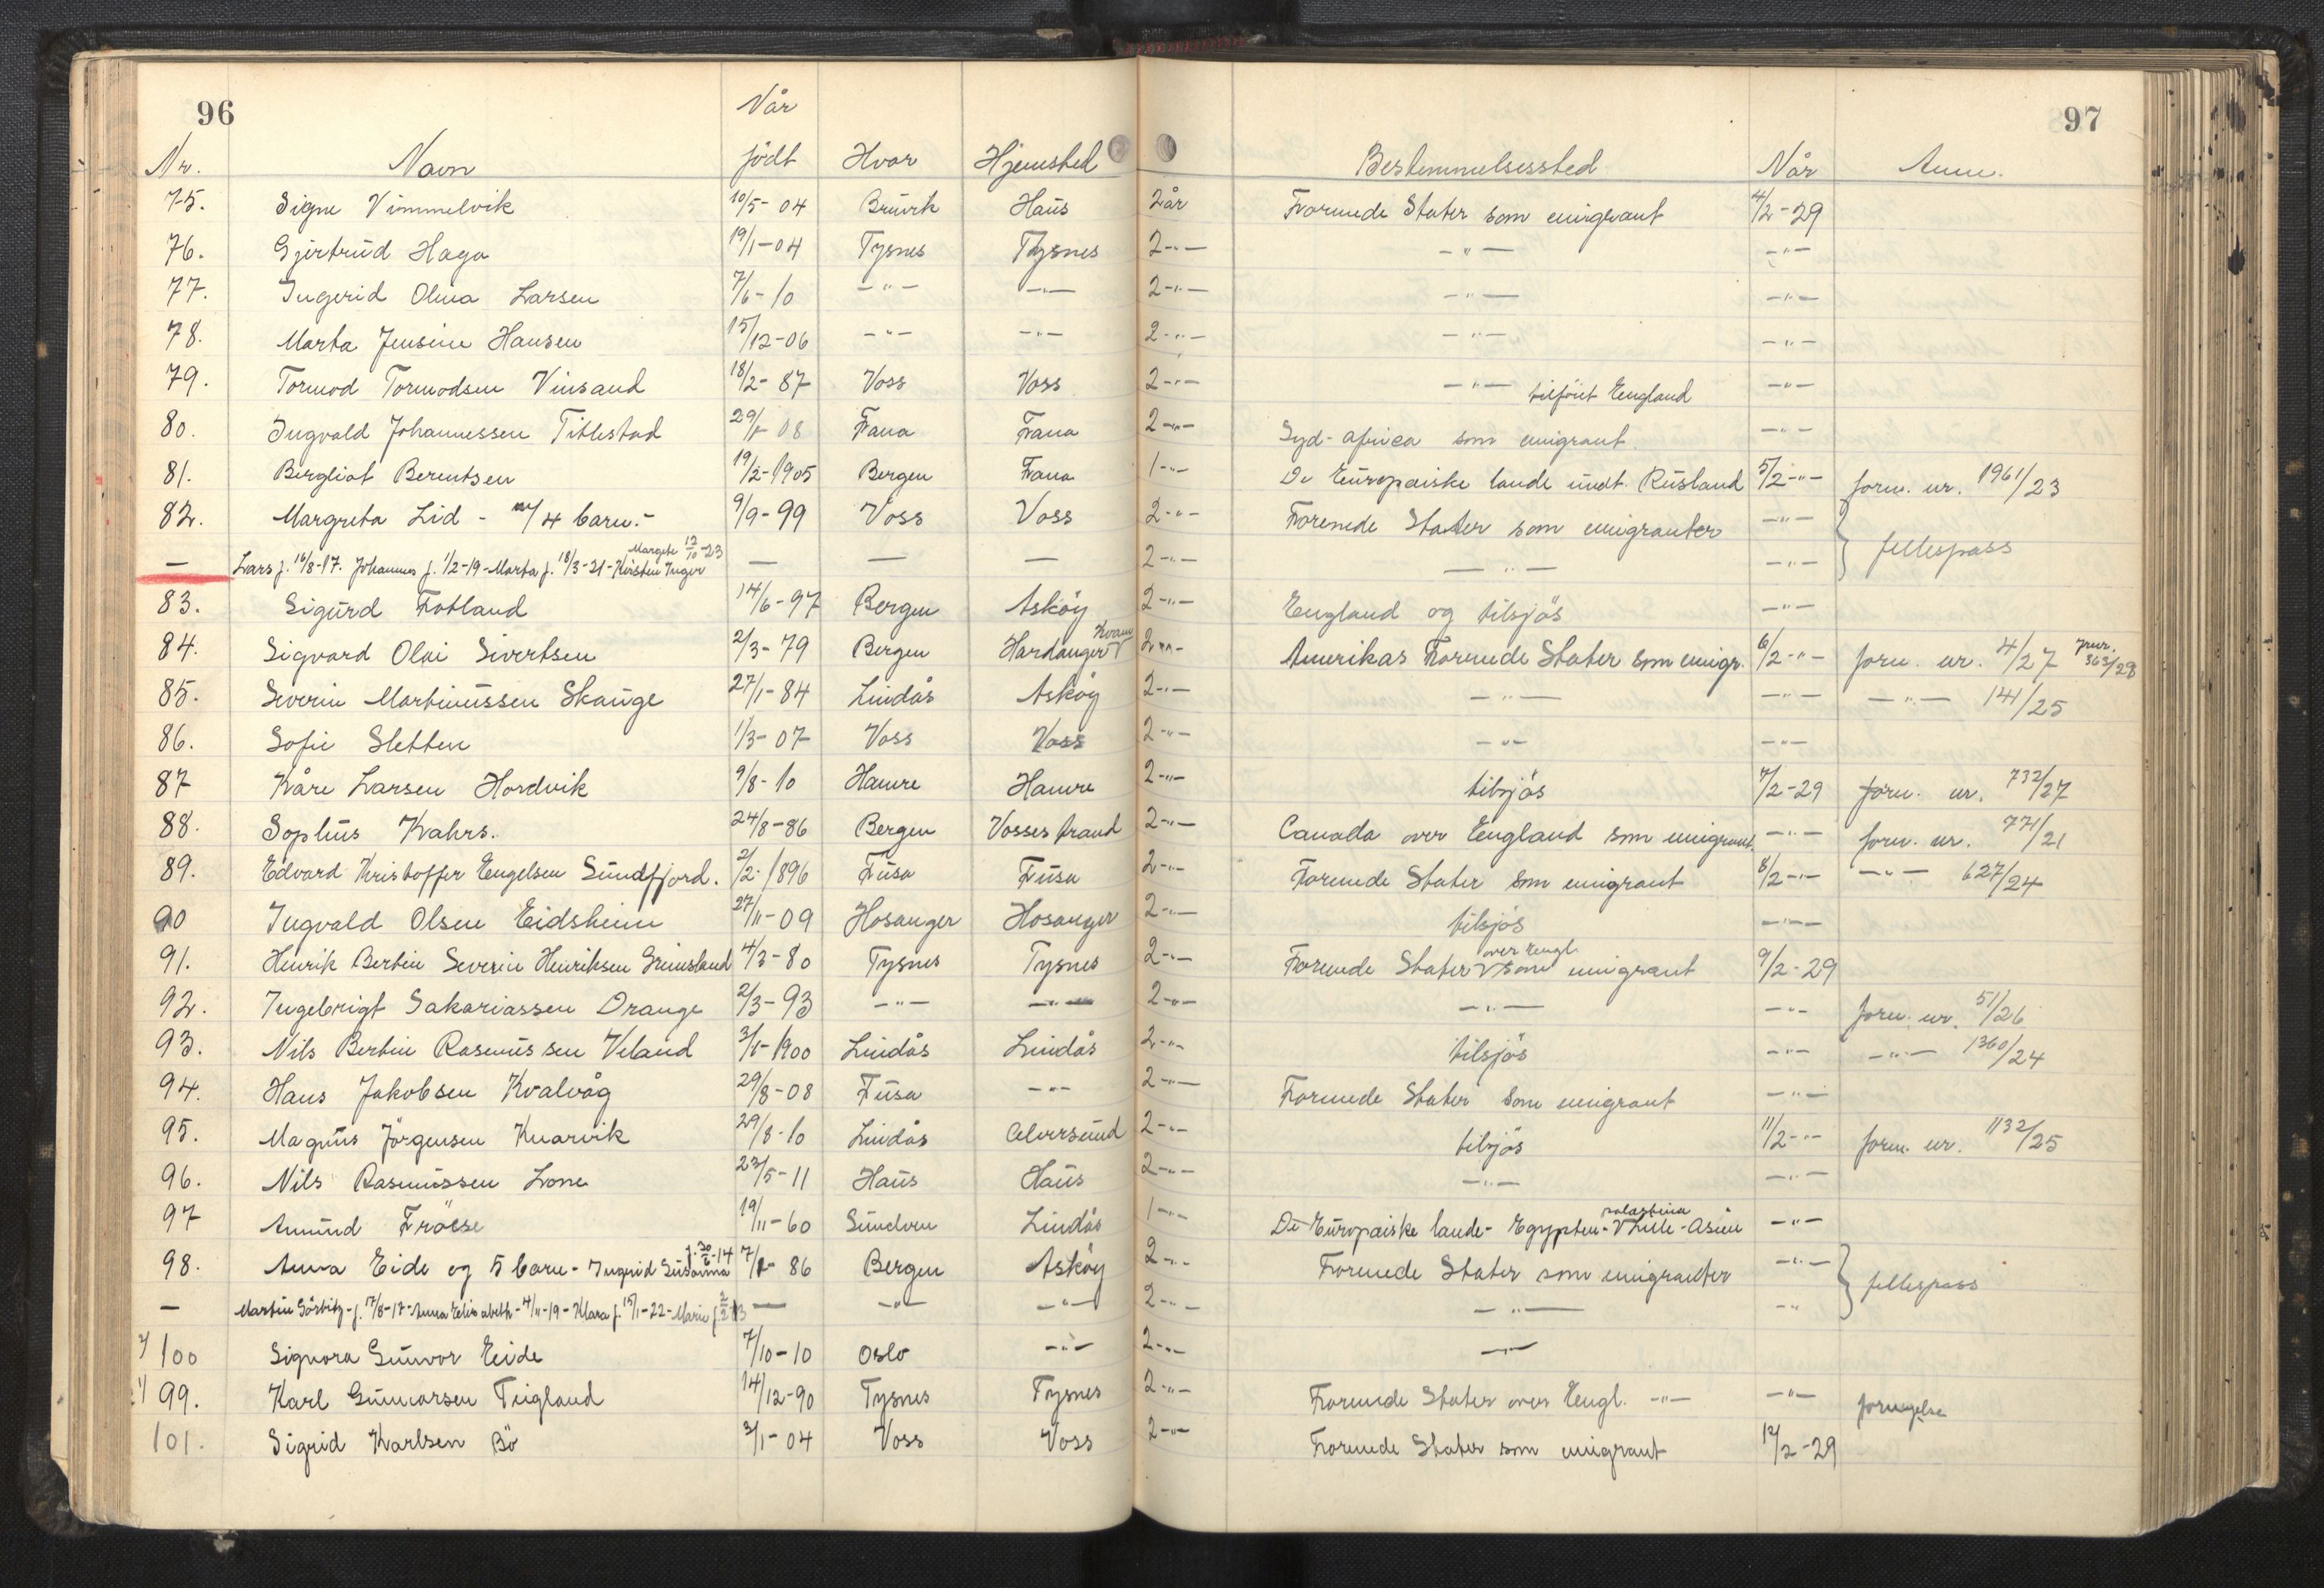 96 97
Når
Nr. Navn födt Hvor Hjemsted Bestemmelsessted Når Anm.
75. Signe Vimmelvik 10/5-04 Bruvik Haus 2 år Forenede Stater som emigrant 4/2-29
76. Gjertrud Haga 19/1-04 Tysnes Tysnes 2-"- -"- -"-
77. Ingerid Olina Larsen 7/6-10 -"- -"- 2-"- -"- -"-
78. Marta Jensine Hansen 15/12-06 -"- -"- 2-"- -"- -"-
79. Tormod Tormodsen Vinsand 18/2-87 Voss Voss 2-"- -"- tilföiet England -"-
80. Ingvald Johannessen Titlestad 29/1-08 Fana Fana 2-"- Syd-africa som emigrant -"-
81. Bergliot Berentsen 19/2-1905 Bergen Fana 1-"- De Europaiske lande undt. Rusland 5/2-"- forn. nr. 1961/23
82. Margreta Lid - m/4 barn.- 9/9-99 Voss Voss 2-"- Forenede Stater som emigranter -"- fellespass
— Lars f. 16/8-17. Johannes f. 1/2-19-Marta f. 18/3-21-Kirsten Inger Margete 12/10-23 — — — 2-"- -"- -"-
83. Sigurd Fotland 14/6-97 Bergen Asköy 2-"- England og tilsjös -"-
84. Sigvard Olai Sivertsen 2/3-79 Bergen Hardanger Kvam 2-"- Amerikas Forenede Stater som emigr. 6/2-"- forn. nr. 4/27 363/28
85. Severin Martinussen Skauge 27/1-84 Lindås Asköy 2-"- -"- -"- -"- 141/25
86. Sofie Sletten 1/3-07 Voss Voss 2-"- -"- -"-
87 Kåre Larsen Hordvik 9/8-10 Hamre Hamre 2-"- tilsjös 7/2-29 forn. nr. 732/27
88. Sophus Krahrs. 24/8-86 Bergen Vossestrand 2-"- Canada over England som emigrant. -"- forn. nr. 771/21
89. Edvard Kristoffer Engelsen Sundfjord. 2/2-1896 Fusa Fusa 2-"- Forenede Stater som emigrant 8/2-"- -"- 627/24
90 Ingvald Olsen Eidsheim 27/11-09 Hosanger Hosanger 2-"- tilsjös -"-
91. Henrik Bertin Severin Henriksen Grimsland 4/3-80 Tysnes Tysnes 2-"- Forenede Stater over Engl. som emigrant 9/2-29
92. Ingebrigt Sakariassen Drange 2/3-93 -"- -"- 2-"- -"- -"- forn. nr. 51/26
93. Nils Bertin Rasmussen Veland 3/1-1900 Lindås Lindås 2-"- tilsjös -"- -"- 1360/24
94. Hans Jakobsen Kvalvåg 29/8-08 Fusa -"- 2-"- Forenede Stater som emigrant -"-
95. Magnus Jörgensen Knarvik 29/8-10 Lindås Alversund 2-"- tilsjös 11/2-"- forn. nr. 1132/25
96. Nils Rasmussen Lone 23/5-11 Haus Haus 2-"- -"- -"-
97 Amund Fröise 19/11-60 Lindås 1-"- De Europaiske lande-Egypten-palæstina Lille-Asien -"-
98. Anna Eide og 5 barn-Ingerid Susanna f. 30/6-14 7/1-86 Bergen Asköy 2-"- Forenede Stater som emigranter -"- fellespass
— Martin Görbitz-f. 17/8-17-Anna Elisabeth-4/11-19-Klara f. 15/1-22-Marie f. — -"- -"- 2-"- -"- -"-
2/ 100 Signora Gunvor Eide 7/10-10 Oslo -"- 2-"- -"-
1/ 99. Karl Gunnarsen Teigland 14/12-90 Tysnes Tysnes 2-"- Forenede Stater over Engl. -"- -"- fornyelse
101. Sigrid Karlsen Bö 3/1-04 Voss Voss 2-"- Forenede Stater som emigrant 12/2-29